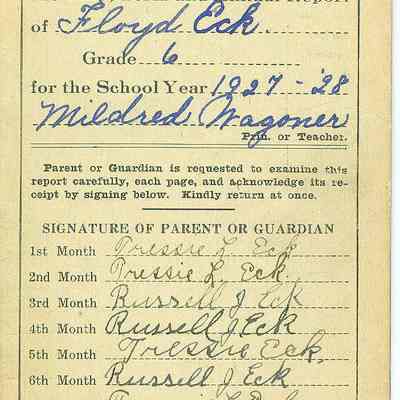 of Floyd Eck.
Grade 6
for the School Year 1927-'28
Mildred Wagoner
Prin. or Teacher.
Parent or Guardian is requested to examine this
report carefully, each page, and acknowledge its re-
ceipt by signing below. Kindly return at once.
SIGNATURE OF PARENT OR GUARDIAN
1st Month Tressie L. Eck
2nd Month Tressie L. Eck.
3rd Month Russell J Eck
4th Month Russell J Eck
5th Month Tressie Eck.
6th Month Russell J Eck